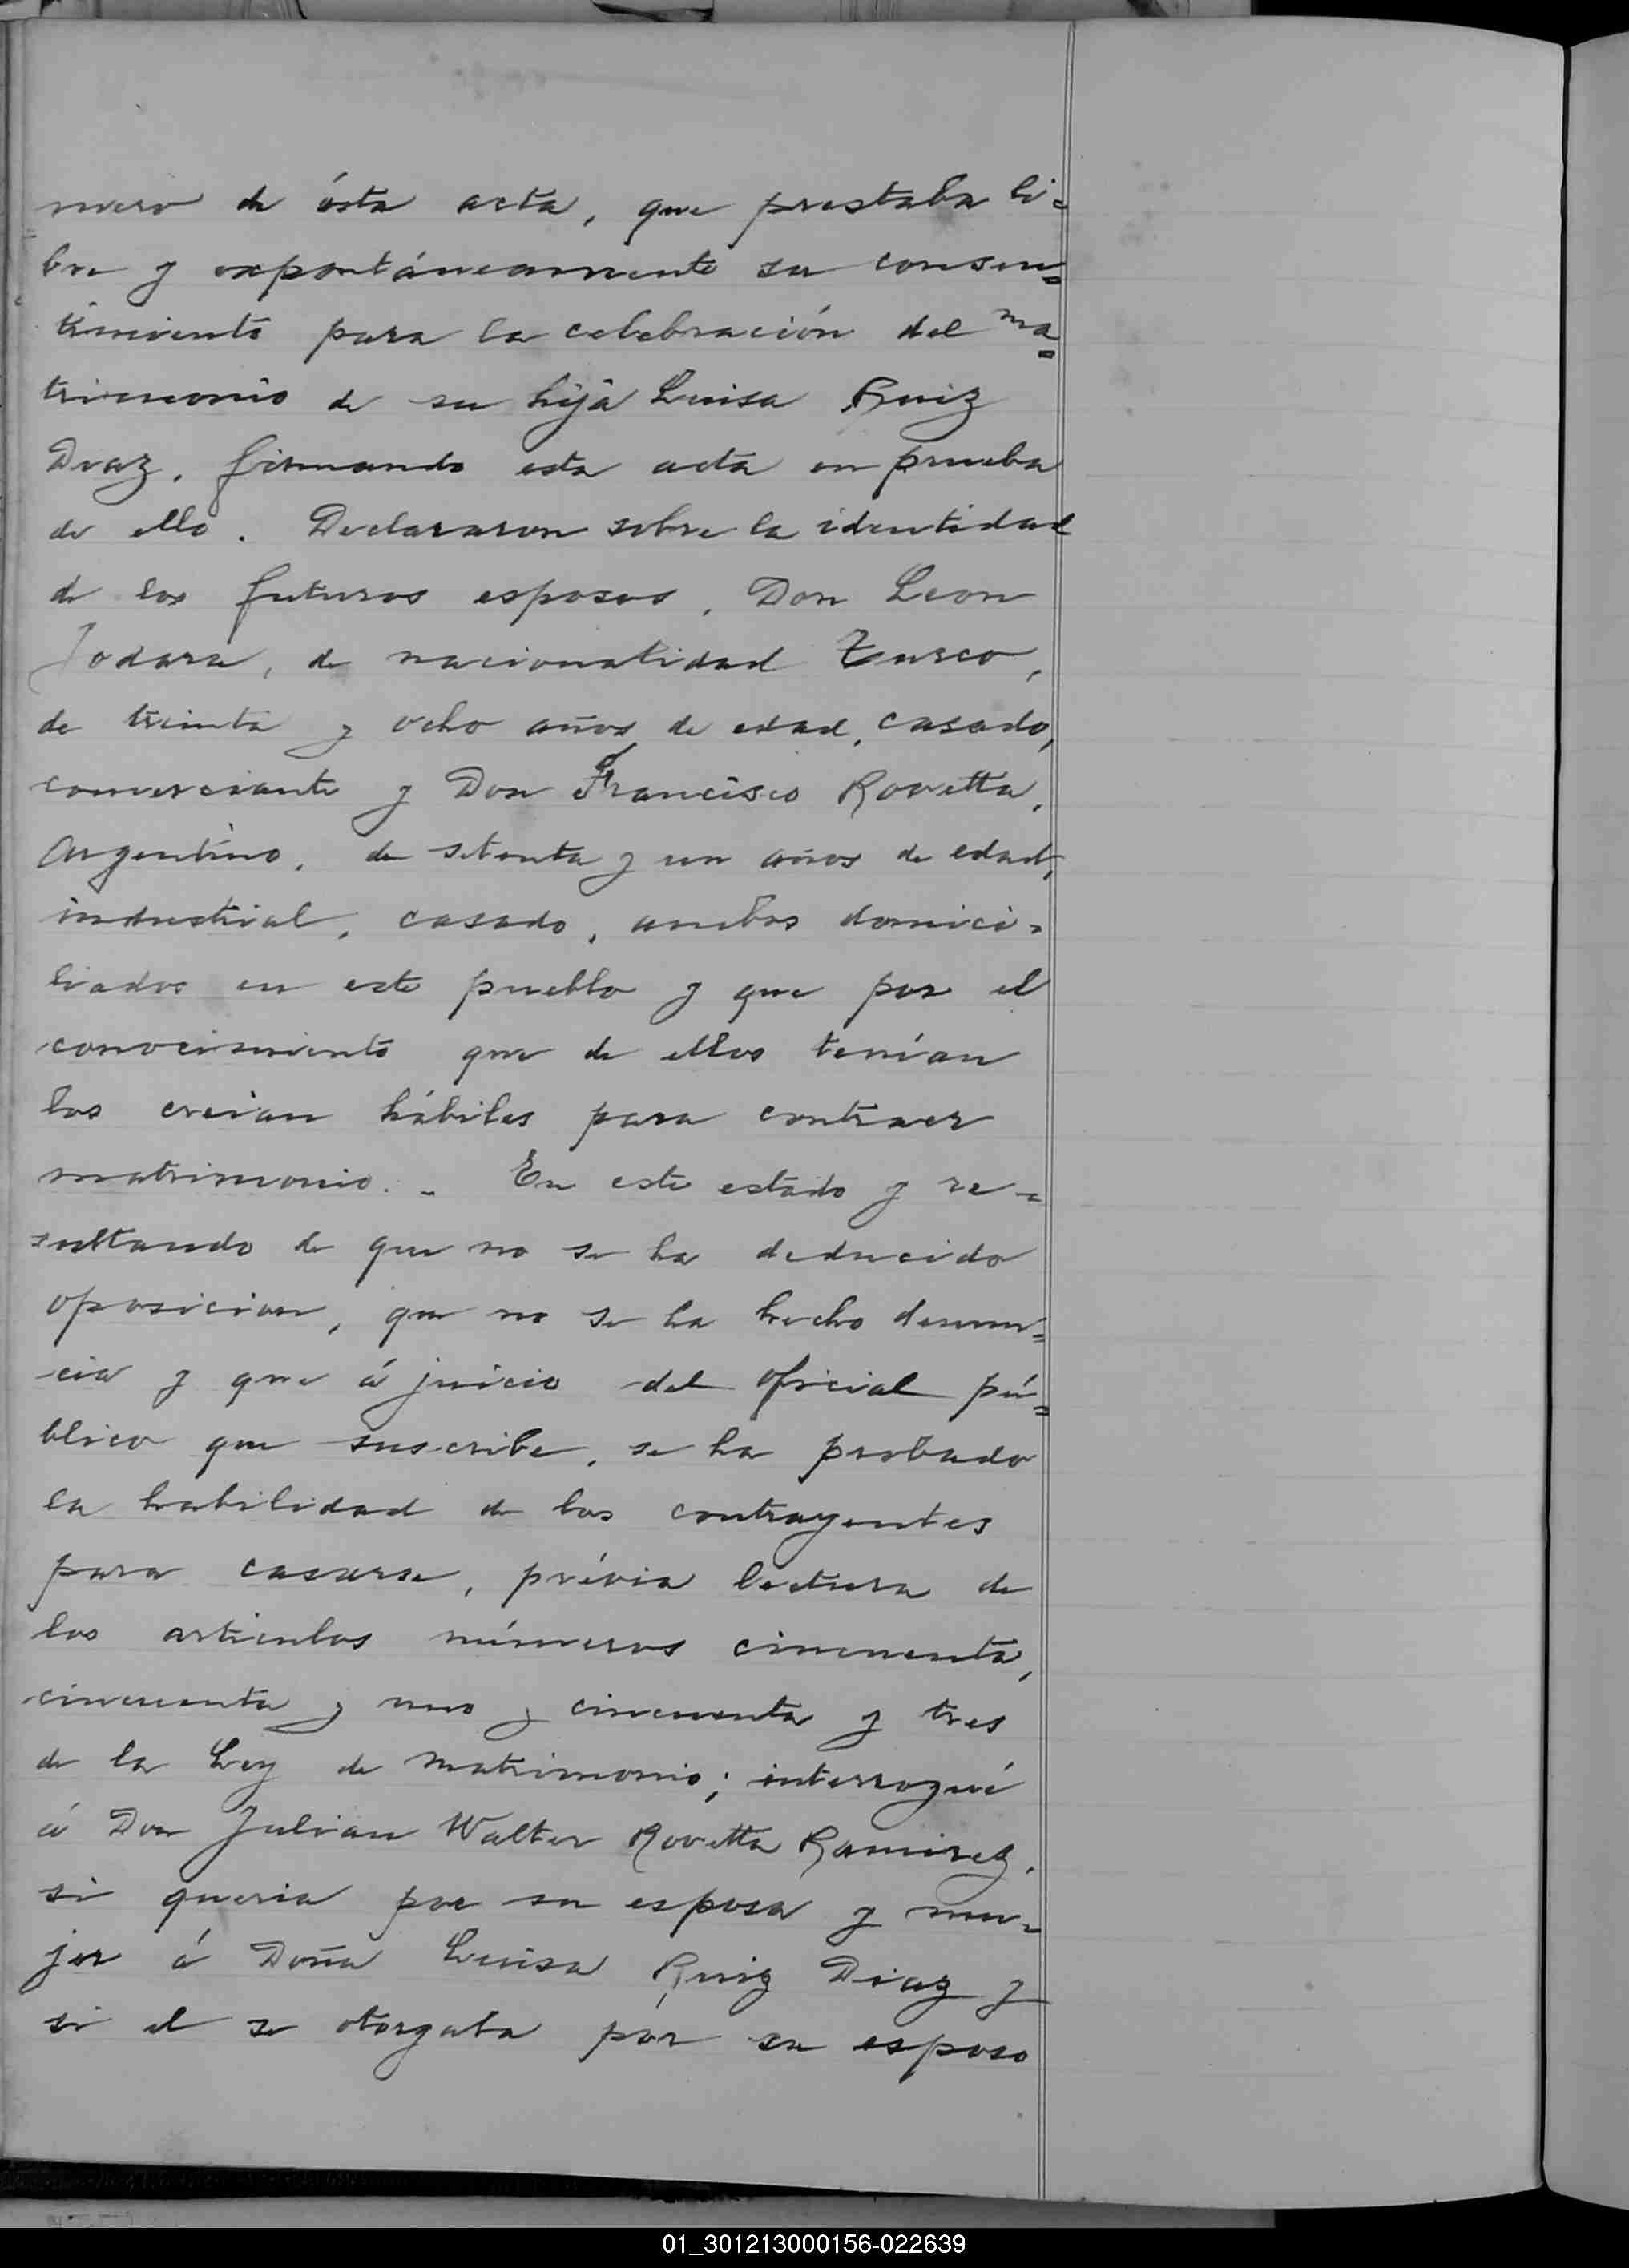 mero de ésta acta, que prestaba li=
bre y expontáneamente su consen=
timiento para la celebración del ma=
trimonio de su hija Luisa Ruiz
Diaz, firmando esta acta en prueba
de ello. Declararon sobre la identidad
de los futuros esposos, Don Leon
Jodara, de nacionalidad Turco,
de treinta y ocho años de edad, casado,
comerciante y Don Francisco Rovetta,
Argentino, de setenta y un años de edad,
industrial, casado, ambos domici-
liados en este pueblo y que por el
conocimiento que de ellos tenían
los creian hábiles para contraer
matrimonio. - En este estado y re-
sultando de que no se ha deducido
oposicion, que no se ha hecho denun=
cia y que á juicio del oficial pú=
blico que suscribe, se ha probado
la habilidad de los contrayentes
para casarse, prévia lectura de
los articulos números cincuenta,
cincuenta y uno y cincuenta y tres
de la Ley de Matrimonio; interrogué
á Don Julian Walter Rovetta Ramirez,
si queria por su esposa y mu-
jer á Doña Luisa Ruiz Diaz y
si el se otorgaba por su esposo
01_301213000156-022639